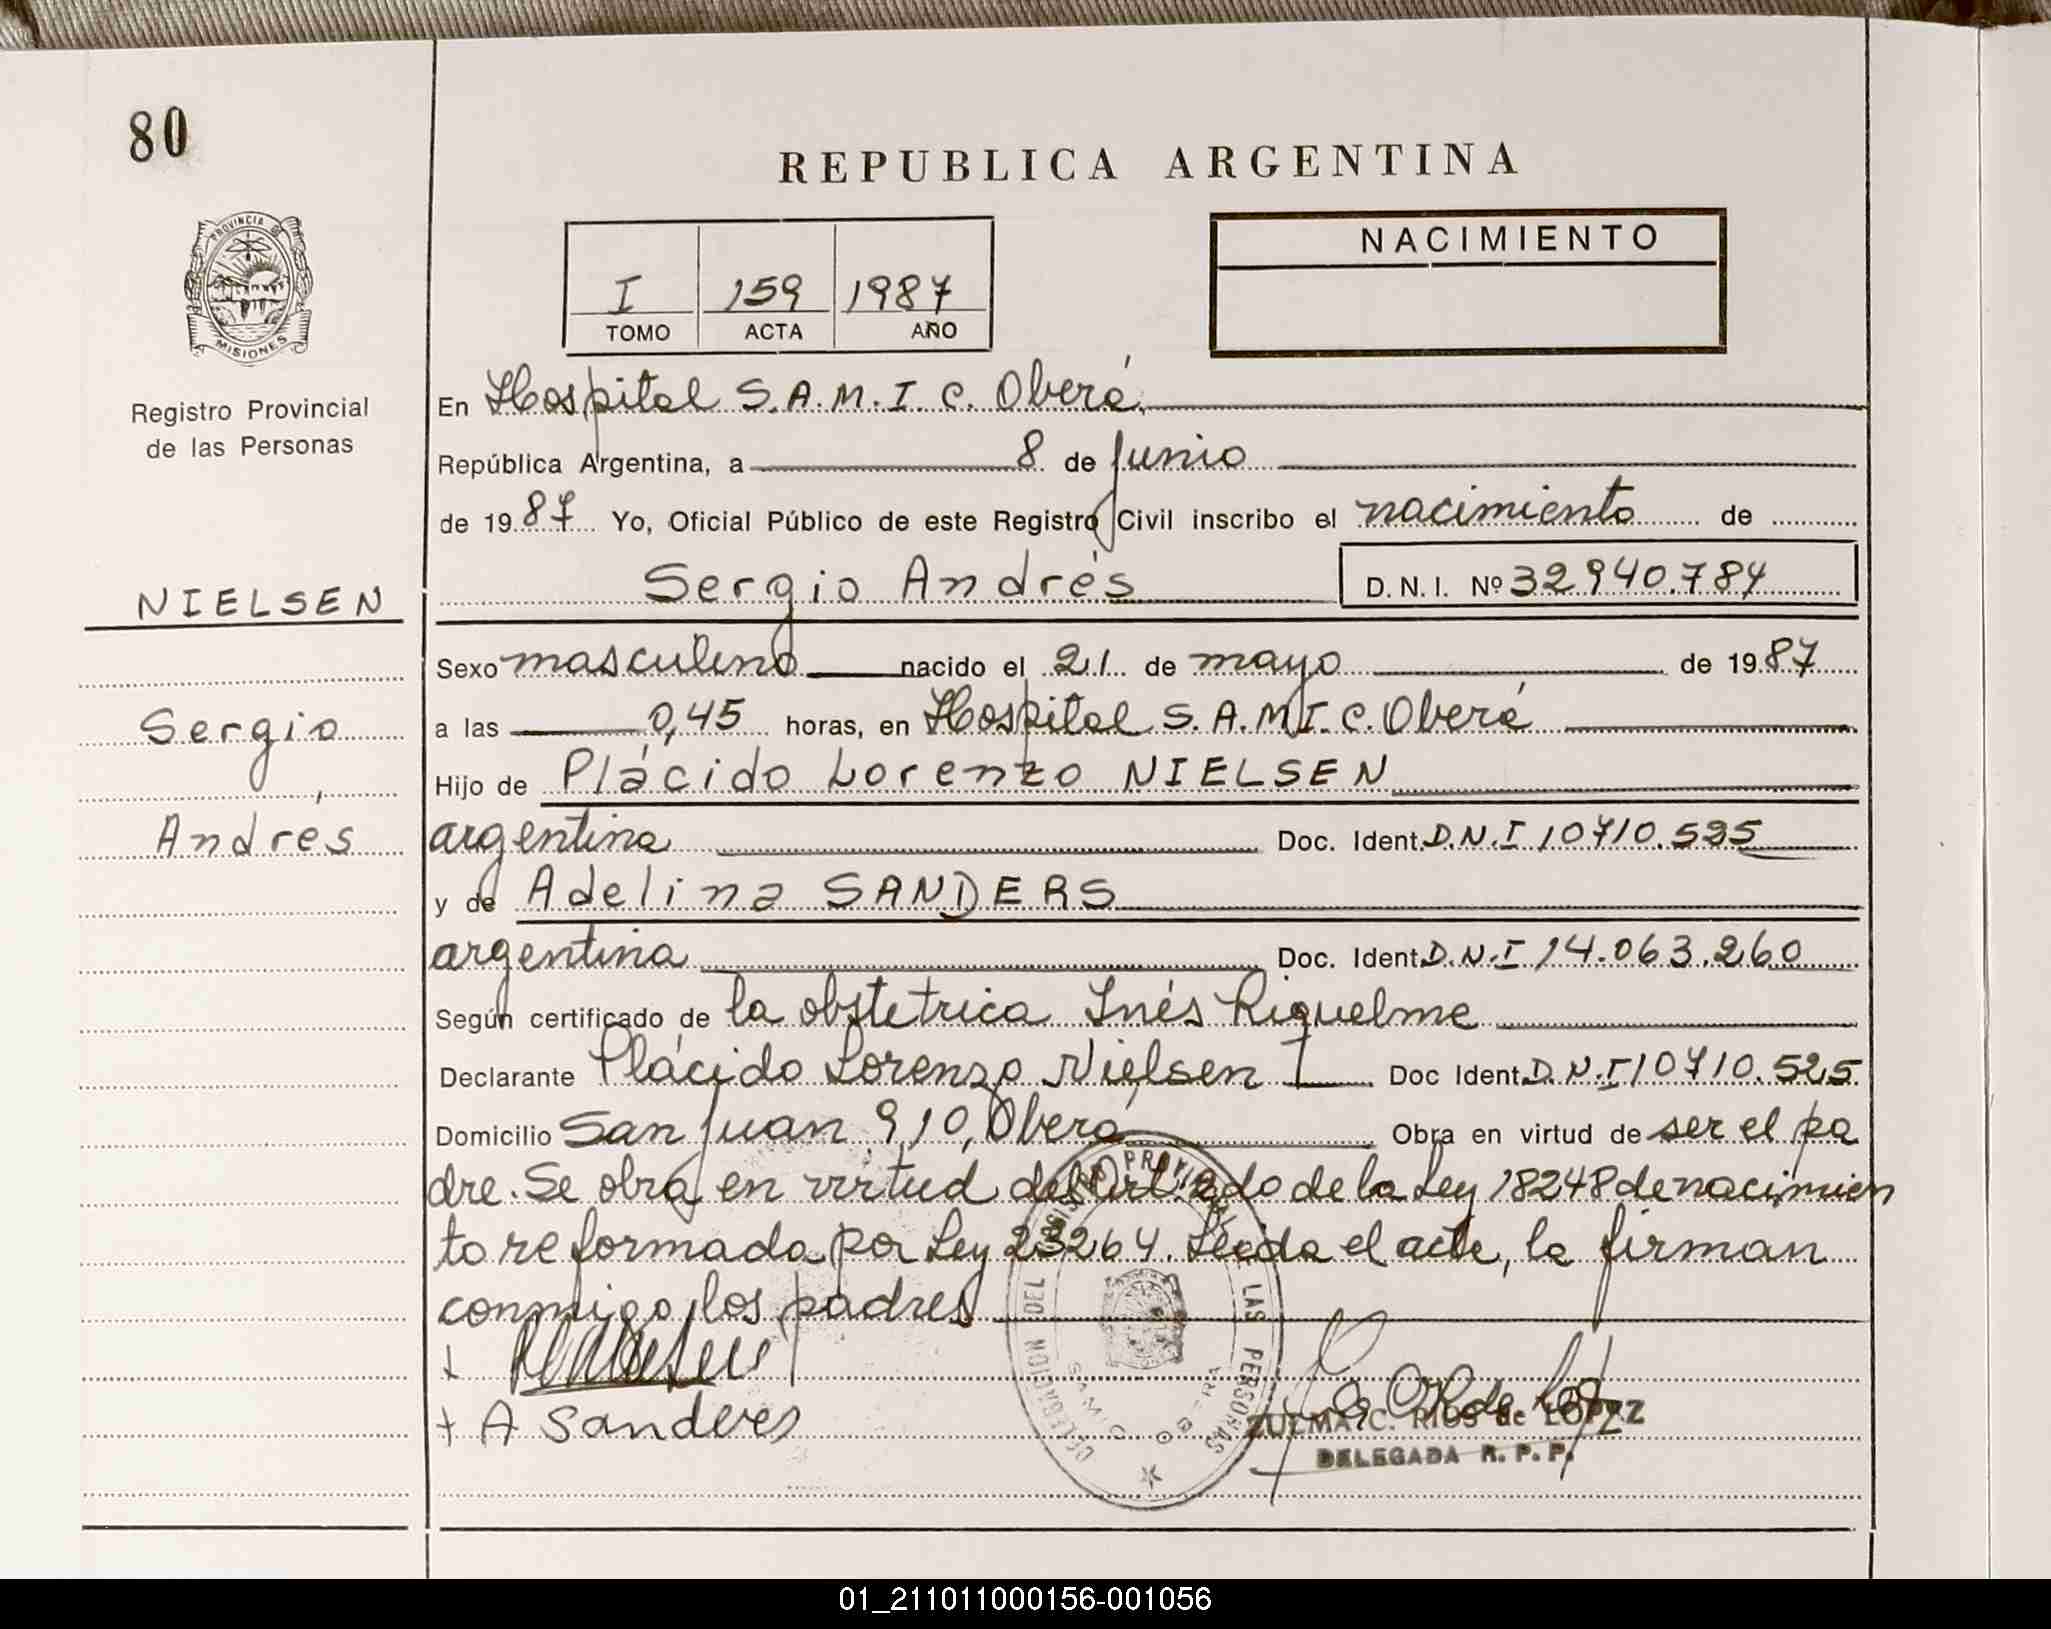 80
REPUBLICA ARGENTINA
PROVINCIA DE
MISIONES
Registro Provincial
de las Personas
I 159 1987
TOMO ACTA AÑO
NACIMIENTO
En Hospital S.A.M.I.C. Oberá
República Argentina, a 8 de Junio
de 1987 Yo, Oficial Público de este Registro Civil inscribo el nacimiento de
Sergio Andrés D.N.I. Nº 32.940.784
NIELSEN
Sergio
Andrés
Sexo masculino nacido el 21 de mayo de 1987
a las 0,45 horas, en Hospital S.A.M.I.C. Oberá
Hijo de Plácido Lorenzo NIELSEN
argentina Doc. Ident. D.N.I 10710.525
y de Adelina SANDERS
argentina Doc. Ident. D.N.I 14.063.260
Según certificado de la obstetrica Inés Riquelme
Declarante Plácido Lorenzo Nielsen Doc Ident. D.N.I 10710.525
Domicilio San Juan 910, Oberá Obra en virtud de ser el pa
dre. Se obra en virtud del Art. 2do de la Ley 18248 de nacimien
to reformada por Ley 23264. Leida el acta, la firman
conmigo los padres
A Sanders
DELEGACION DEL REGISTRO PROVINCIAL DE LAS PERSONAS
SAMIC OBERA
ZULMA C. RIOS de LOPEZ
DELEGADA R. P. P.
01_211011000156-001056